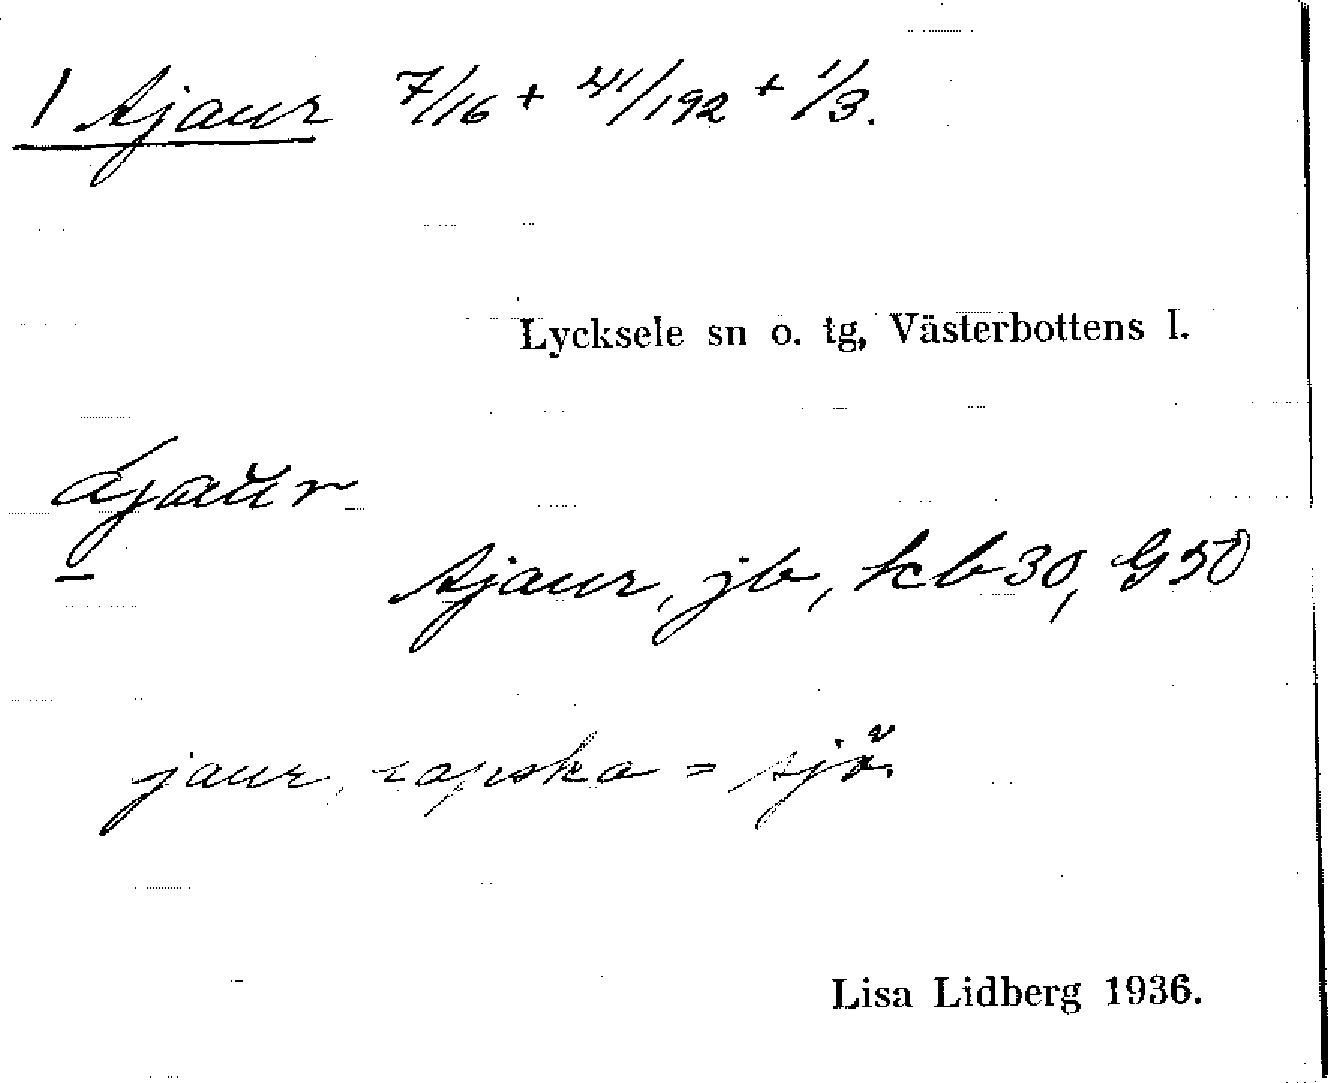 1 Ajaur 7/16 + 41/192 + 1/3.
Lycksele sn o. tg, Västerbottens l.
ájaŭr
Ajaur, jb, kb 30, G 50
jaur, lapska = sjö.
Lisa Lidberg 1936.